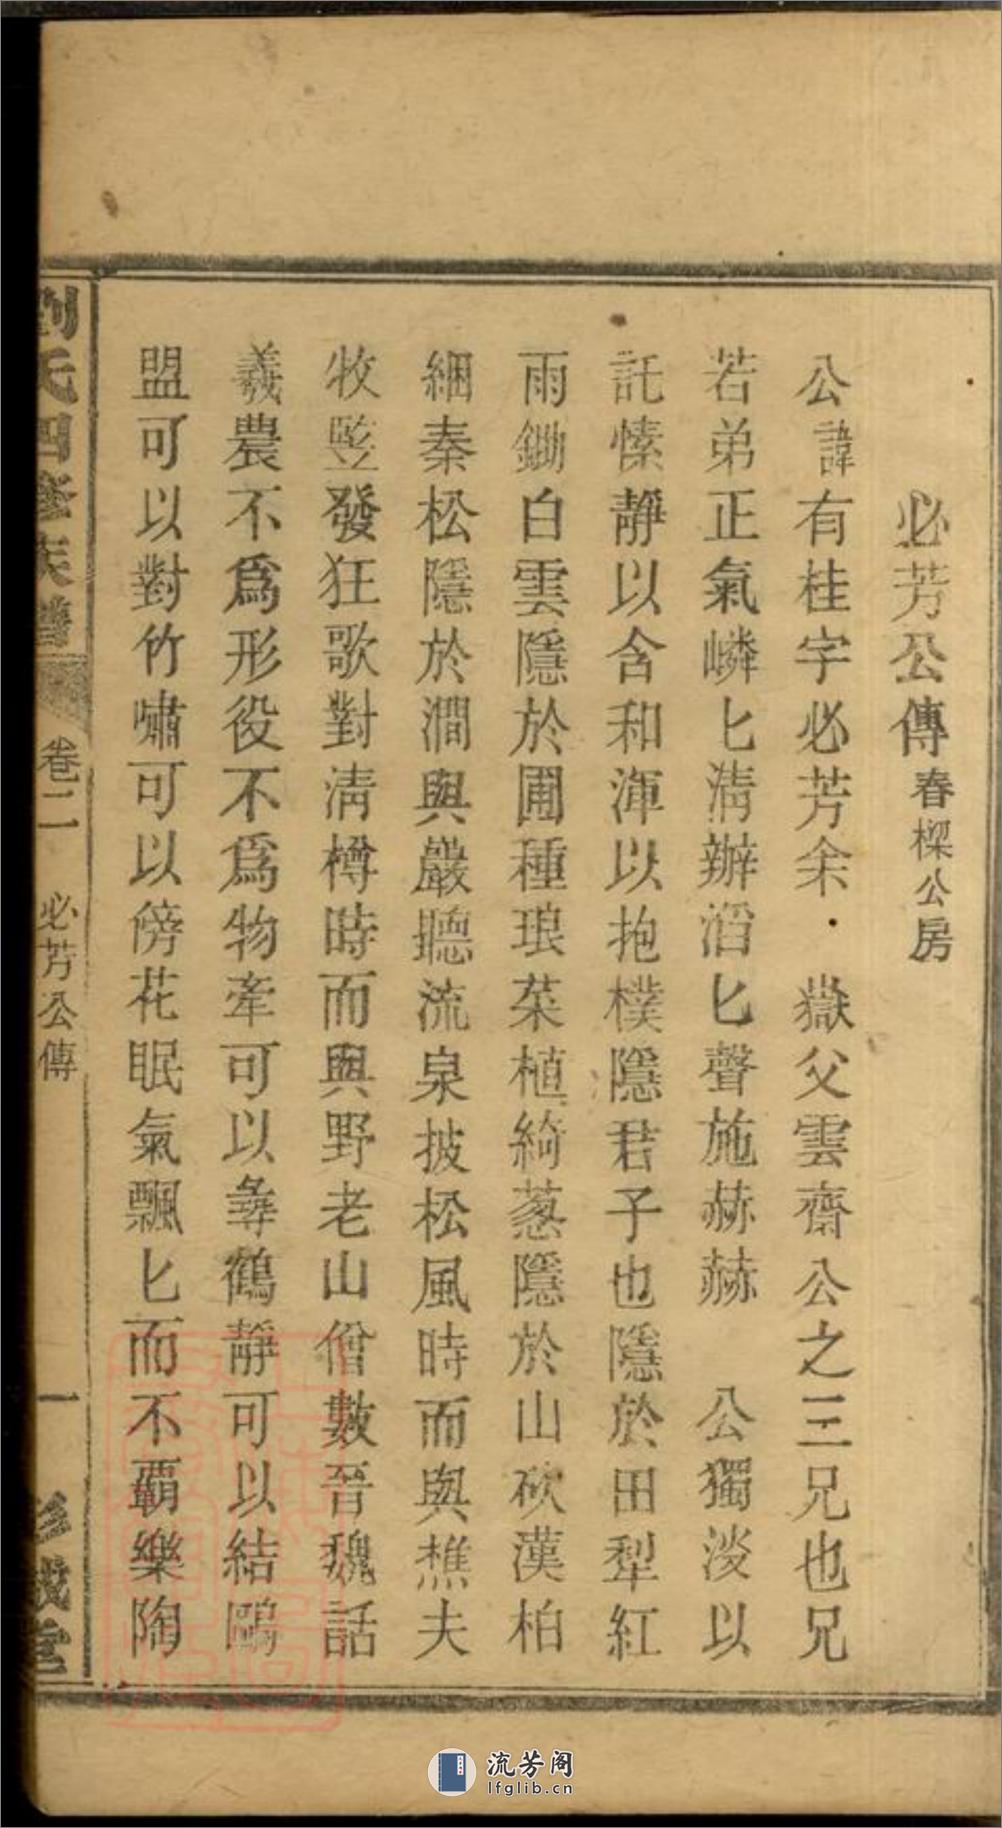 必芳公傳春樑公房
公諱有桂字必芳余·嶽父雲齋公之三兄也兄
若弟正氣嶙匕淸辦滔匕聲施赫赫　公獨淡以
託愫靜以含和渾以抱樸隱君子也隱於田犁紅
雨鋤白雲隱於圃種琅菜植綺蔥隱於山砍漢柏
綑秦松隱於澗與巖聽流泉披松風時而與樵夫
牧豎發狂歌對淸樽時而與野老山僧數晉魏話
羲農不爲形役不爲物牽可以彝鶴靜可以結鷗
盟可以對竹嘯可以傍花眠氣飄匕而不覊樂陶
劉氏四修族譜
卷二
必芳公傳
一
彭城堂
流芳阁
lfglib.cn